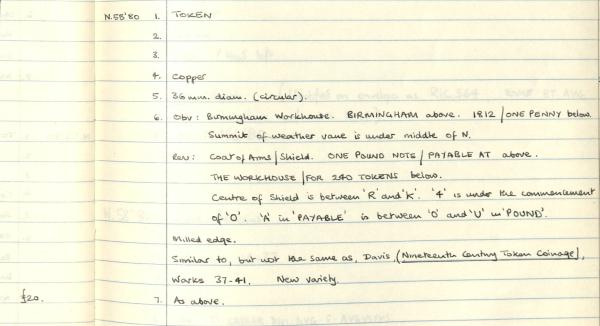 N.58'80 1. TOKEN
2.
3.
4. Copper
5. 36mm. diam. (circular).
6. Obv: Birmingham Workhouse. BIRMINGHAM above. 1812 / ONE PENNY below.
Summit of weather vane is under middle of N.
Rev: Coat of Arms / Shield. ONE POUND NOTE / PAYABLE AT above.
THE WORKHOUSE / FOR 240 TOKENS below.
Centre of Shield is between 'R' and 'K'. '4' is under the commencement
of 'O'. 'A' in 'PAYABLE' is between 'O' and 'U' in 'POUND'.
Milled edge.
Similar to, but not the same as, Davis, (Nineteenth Century Token Coinage),
Warks 37-41. New variety.
£20. 7. As above.